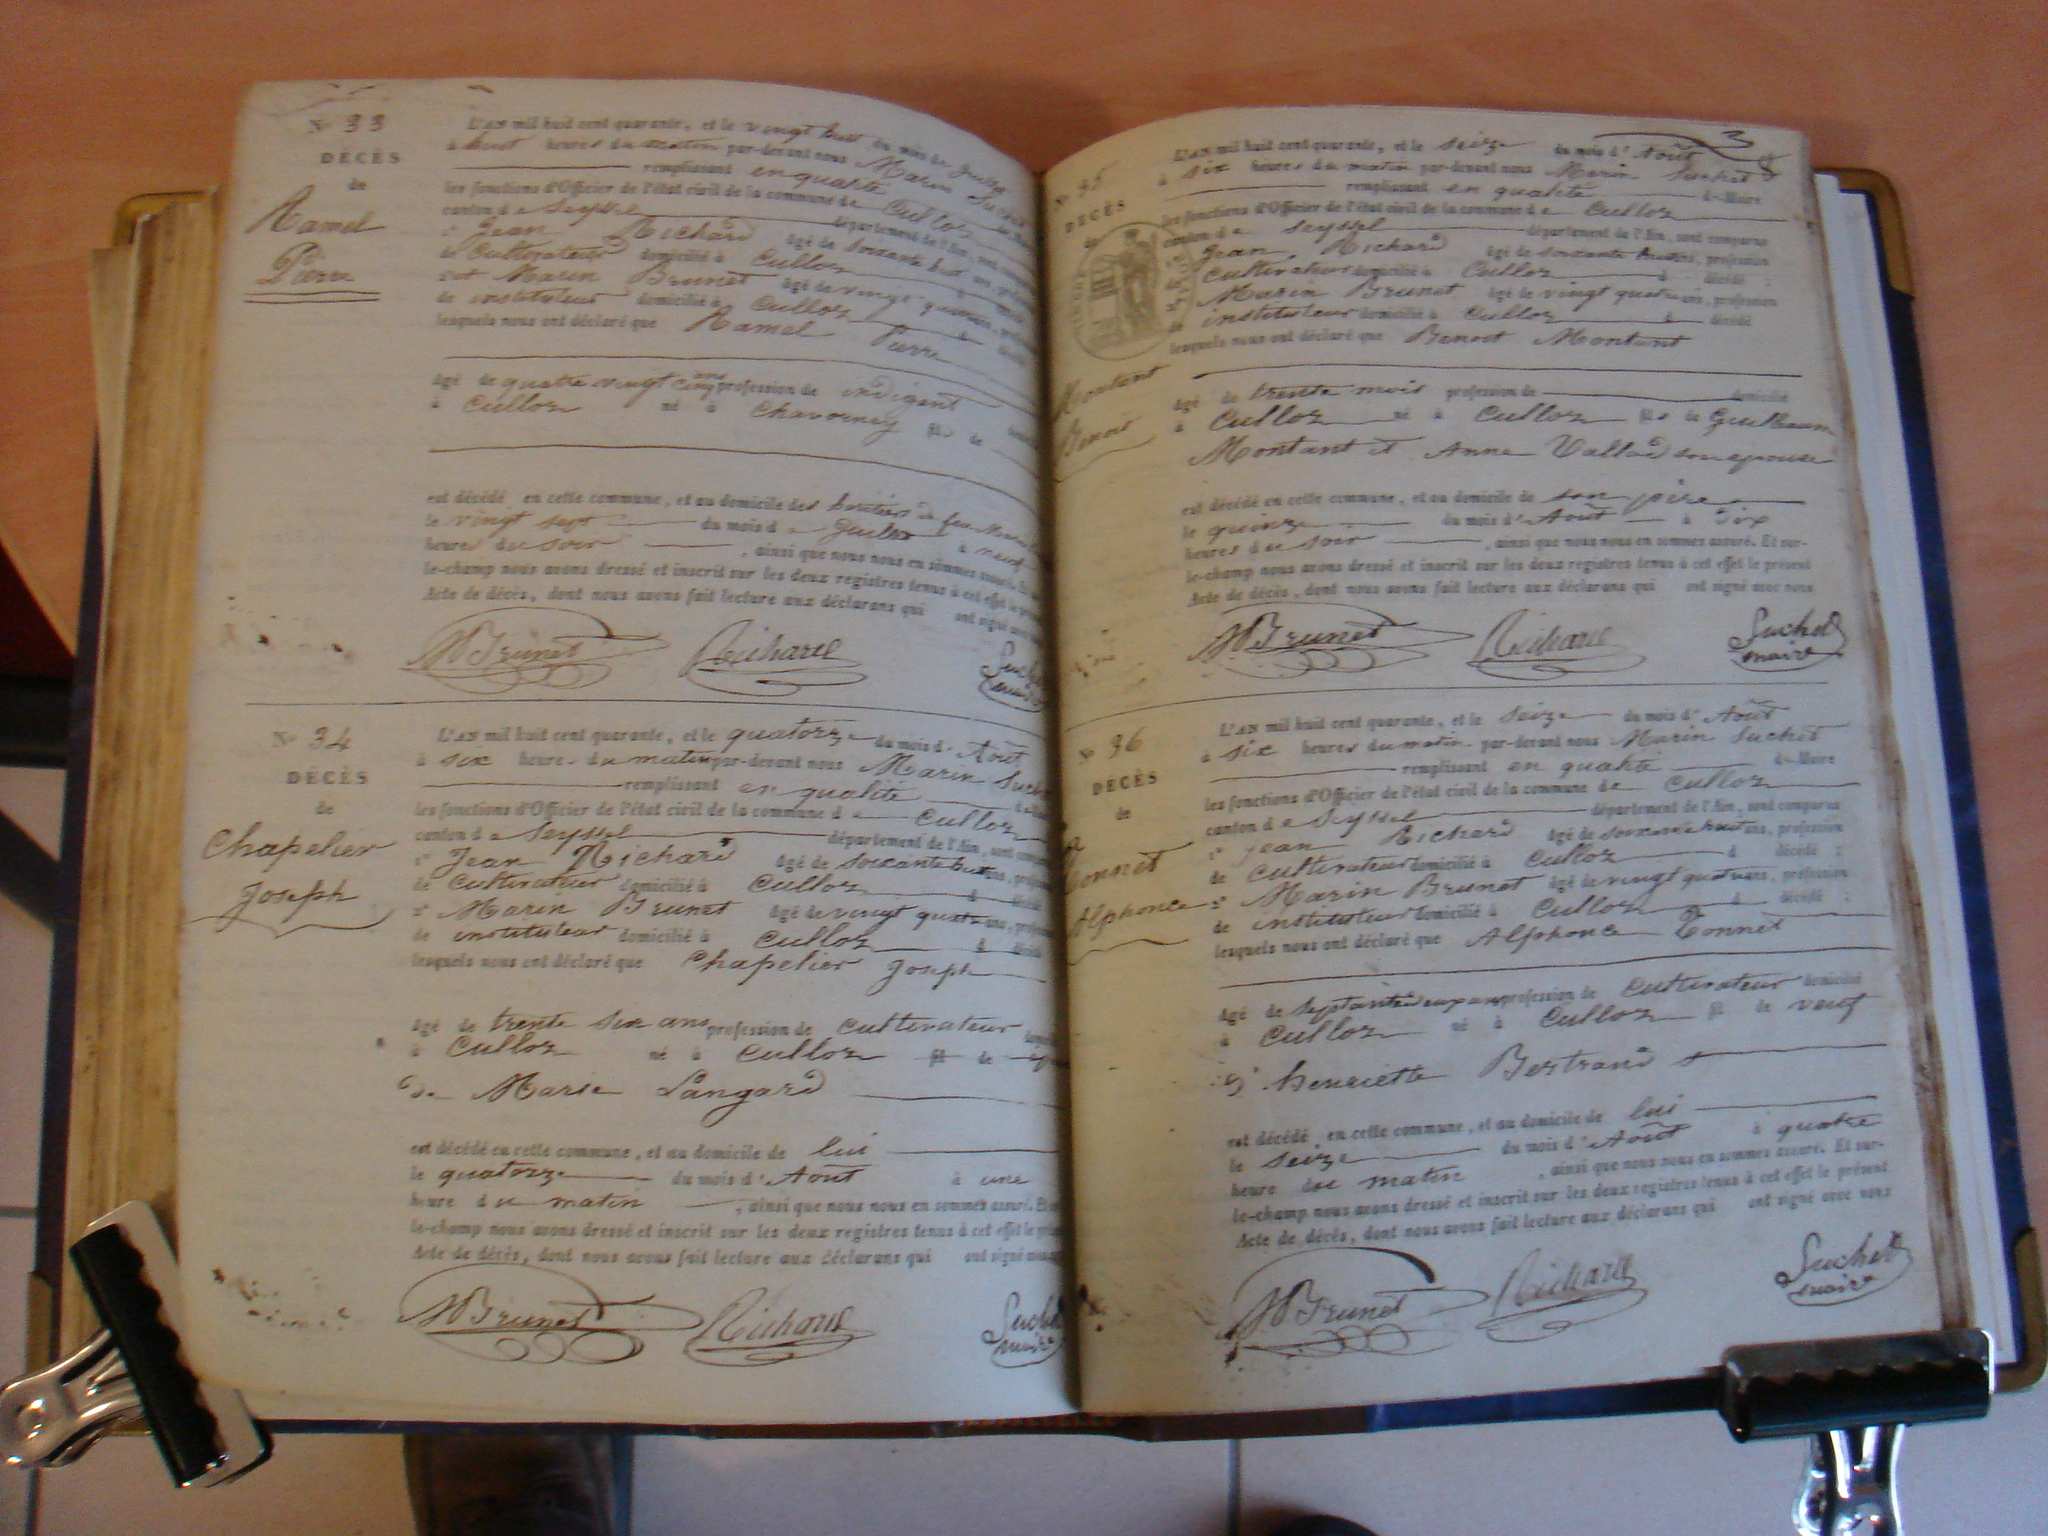 N° 33
DÉCÈS
de
Ramel
Pierre
L'AN mil huit cent quarante, et le vingt huit du mois de
à huit heures du matin par-devant nous Marin
remplissant en qualité
les fonctions d'Officier de l'état civil de la commune de Culloz
canton de Seyssel département de l'Ain,
1° Jean Richard âgé de soixante huit ans,
de Cultivateur domicilié à Culloz
2° et Marin Brunet âgé de vingt quatre ans,
de instituteur domicilié à Culloz
lesquels nous ont déclaré que Ramel Pierre
âgé de quatre vingt cinq ans profession de indigent
à Culloz né à Chavornay fils de
est décédé en cette commune, et au domicile des héritiers de feu
le vingt sept du mois de Juillet à neuf
heures du soir , ainsi que nous nous en sommes assuré. Et
le-champ nous avons dressé et inscrit sur les deux registres tenus à cet effet le
Acte de décès, dont nous avons fait lecture aux déclarans qui ont signé
MBrunet Richard Suchet
maire
N° 34
DÉCÈS
de
Chapelier
Joseph
L'AN mil huit cent quarante, et le quatorze du mois d'Août
à six heures du matin par-devant nous Marin Suchet
remplissant en qualité
les fonctions d'Officier de l'état civil de la commune de Culloz
canton de Seyssel département de l'Ain, sont
1° Jean Richard âgé de soixante huit ans,
de Cultivateur domicilié à Culloz
2° Marin Brunet âgé de vingt quatre ans,
de instituteur domicilié à Culloz
lesquels nous ont déclaré que Chapelier Joseph
âgé de trente six ans profession de Cultivateur
à Culloz né à Culloz fil de
de Marie Langard
est décédé en cette commune, et au domicile de lui
le quatorze du mois d'Août à une
heure du matin , ainsi que nous nous en sommes assuré. Et
le-champ nous avons dressé et inscrit sur les deux registres tenus à cet effet le
Acte de décès, dont nous avons fait lecture aux déclarans qui ont signé
MBrunet Richard Suchet
maire
3
N° 35
DÉCÈS
de
Montant
Benoit
L'AN mil huit cent quarante, et le seize du mois d'Août
à six heures du matin par-devant nous Marin Suchet
remplissant en qualité de Maire
les fonctions d'Officier de l'état civil de la commune de Culloz
canton de Seyssel département de l'Ain, sont comparus
Jean Richard âgé de soixante huit ans, profession
de Cultivateur domicilié à Culloz d décédé ;
Marin Brunet âgé de vingt quatre ans, profession
de instituteur domicilié à Culloz d décédé
lesquels nous ont déclaré que Benoit Montant
âgé de trente mois profession de domicilié
à Culloz né à Culloz fils de Guillaume
Montant et Anne Vallod son epouse
est décédé en cette commune, et au domicile de son père
le quinze du mois d'Août à Six
heures du soir , ainsi que nous nous en sommes assuré. Et sur-
le-champ nous avons dressé et inscrit sur les deux registres tenus à cet effet le présent
Acte de décès, dont nous avons fait lecture aux déclarans qui ont signé avec nous
MBrunet Richard Suchet
maire
N° 36
DÉCÈS
de
Bonnet
Alphonce
L'AN mil huit cent quarante, et le seize du mois d'Août
à six heures du matin par-devant nous Marin Suchet
remplissant en qualité de Maire
les fonctions d'Officier de l'état civil de la commune de Culloz
canton de Seyssel département de l'Ain, sont comparus
1° Jean Richard âgé de soixante huit ans, profession
de Cultivateur domicilié à Culloz d décédé ;
2° Marin Brunet âgé de vingt quatre ans, profession
de instituteur domicilié à Culloz d décédé ;
lesquels nous ont déclaré que Alphonce Bonnet
âgé de septante deux ans profession de Cultivateur domicilié
à Culloz né à Culloz fil de veuf
d'henriette Bertrand
est décédé en cette commune, et au domicile de lui
le seize du mois d'Août à quatre
heure du matin , ainsi que nous nous en sommes assuré. Et sur-
le-champ nous avons dressé et inscrit sur les deux registres tenus à cet effet le présent
Acte de décès, dont nous avons fait lecture aux déclarans qui ont signé avec nous
MBrunet Richard Suchet
maire